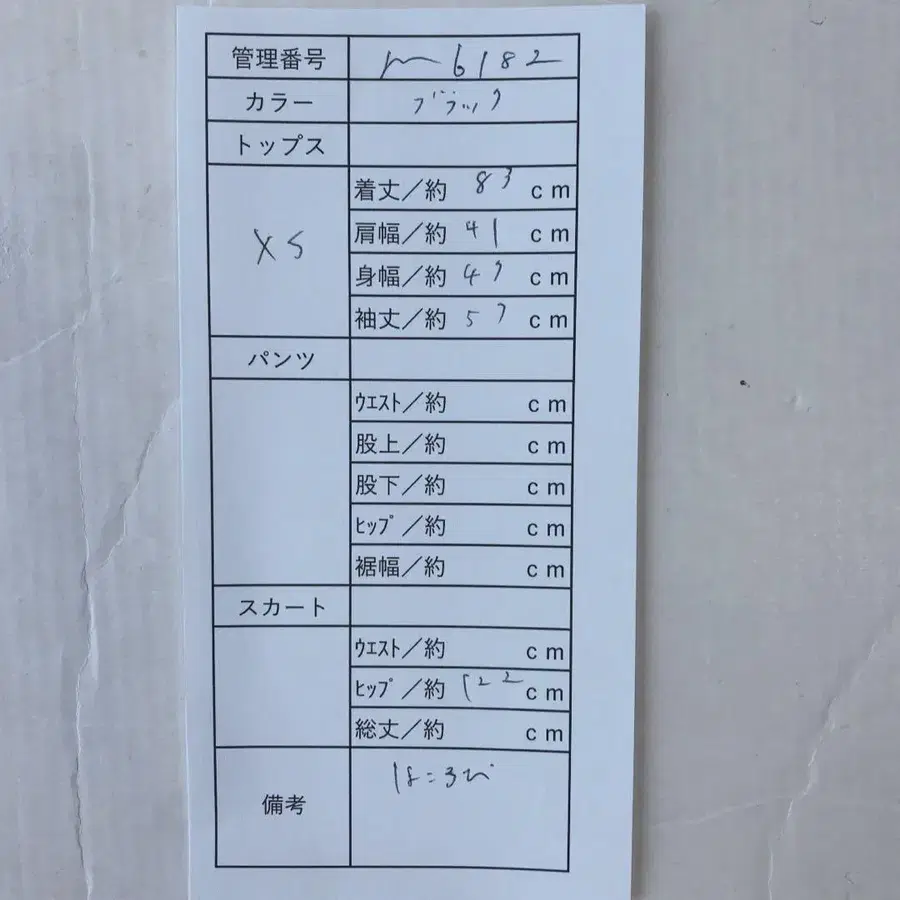 管理番号 m6182
カラー ブラック
トップス
XS
着丈／約 83 cm
肩幅／約 41 cm
身幅／約 47 cm
袖丈／約 57 cm
パンツ
ｳｴｽﾄ／約 cm
股上／約 cm
股下／約 cm
ﾋｯﾌﾟ／約 cm
裾幅／約 cm
スカート
ｳｴｽﾄ／約 cm
ﾋｯﾌﾟ／約 122 cm
総丈／約 cm
備考